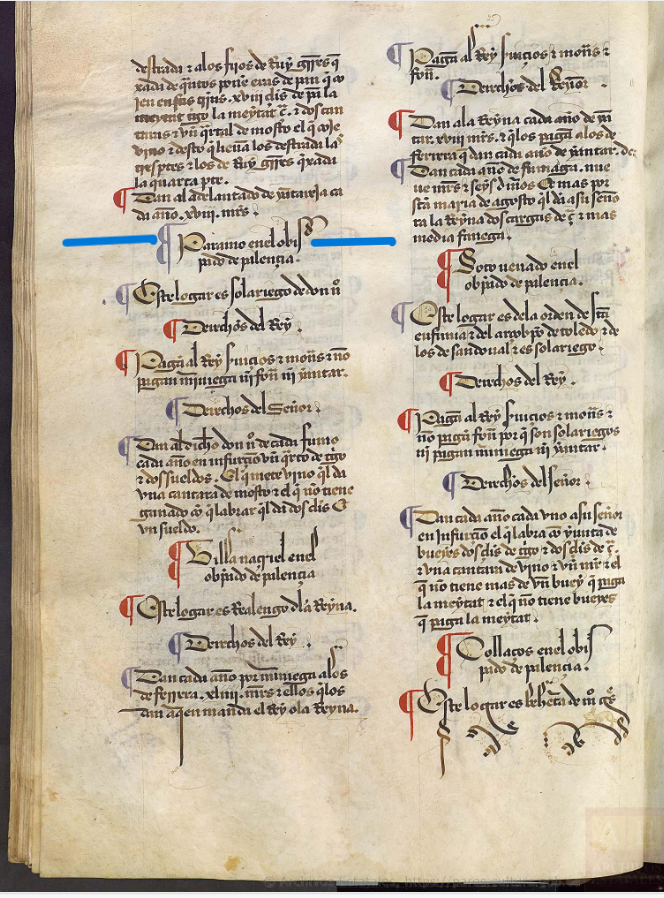 destrada ⁊ alos fijos de Ruy grrs q̃
xada de
la meytad tigo la meytat c̃. ⁊ dos can
taras ⁊ vn̄ q̃rtal de mosto el q̃ coje
vino ⁊ desto q̃ lieua los destrada las
tres ptes ⁊ los de Ruy grres q̃xada
la quarta pte.
Dan al adelantado de yantareja ca
da año. xviii. mrs.
Paramo en el obis
pado de palençia.
Este logar es solariego de don ñ
Derechos del Rey.
Pagã al Rey seruiçios ⁊ mon̄s ⁊ no
pagan miniega ni fon̄ ni yantar.
Derechos del Señor.
Dan al dicho don ñ de cada fumo
cada año en infurçio vn̄ q̃rto de tigo
⁊ dos sueldos. El q̃ mete vino q̃l da
vna cantara de mosto ⁊ el q̃ no tiene
ganado cõ q̃ labrar q̃l da dos çls c̃
vn sueldo.
Villa naguel en el
obpado de palençia
Este logar es Realengo dla Reyna.
Derechos del Rey.
Dan cada año por miniega alos
de ferrera. xliiii. mrs ⁊ ellos q̃los
dan aq̃en manda el Rey o la Reyna.
Pagã al Rey seruiçios ⁊ mon̄s ⁊
fon̄.
Derechos del Señor.
Dan ala Reyna cada año de yã
tar. xviii mrs. ⁊ q̃los pagã alos de
ferrera q̃ dan cada año de yantar. de
Dan cada año de fumaga. nue
ue mrs ⁊ seys dineros Et mas por
sta maria de agosto q̃l dã asu seño
ra la Reyna dos cargas de c̃ ⁊ mas
media fanega.
Soto uenado en el
obpado de palençia.
Este logar es dela orden de sca
enfimia ⁊ del arçobpo de toledo ⁊ de
los de sandoual ⁊ es solariego.
Derechos del Rey.
Pagã al Rey seruiçios ⁊ mon̄s ⁊
no pagã fon̄ por q̃ son solariegos
ni pagan miniega ni yantar.
Derechos del señor.
Dan cada año cada vno asu señor
en infurçion el q̃ labra cõ yunta de
bueyes dos çls de tigo ⁊ dos çls de c̃.
⁊ vna cantara de vino ⁊ vn̄ mr ⁊ el
q̃ no tiene mas de vn̄ buey q̃ paga
la meytat ⁊ el q̃ no tiene bueyes
q̃ paga la meytat.
Collaços en el obis
pado de palençia.
Este logar es behet̃a de